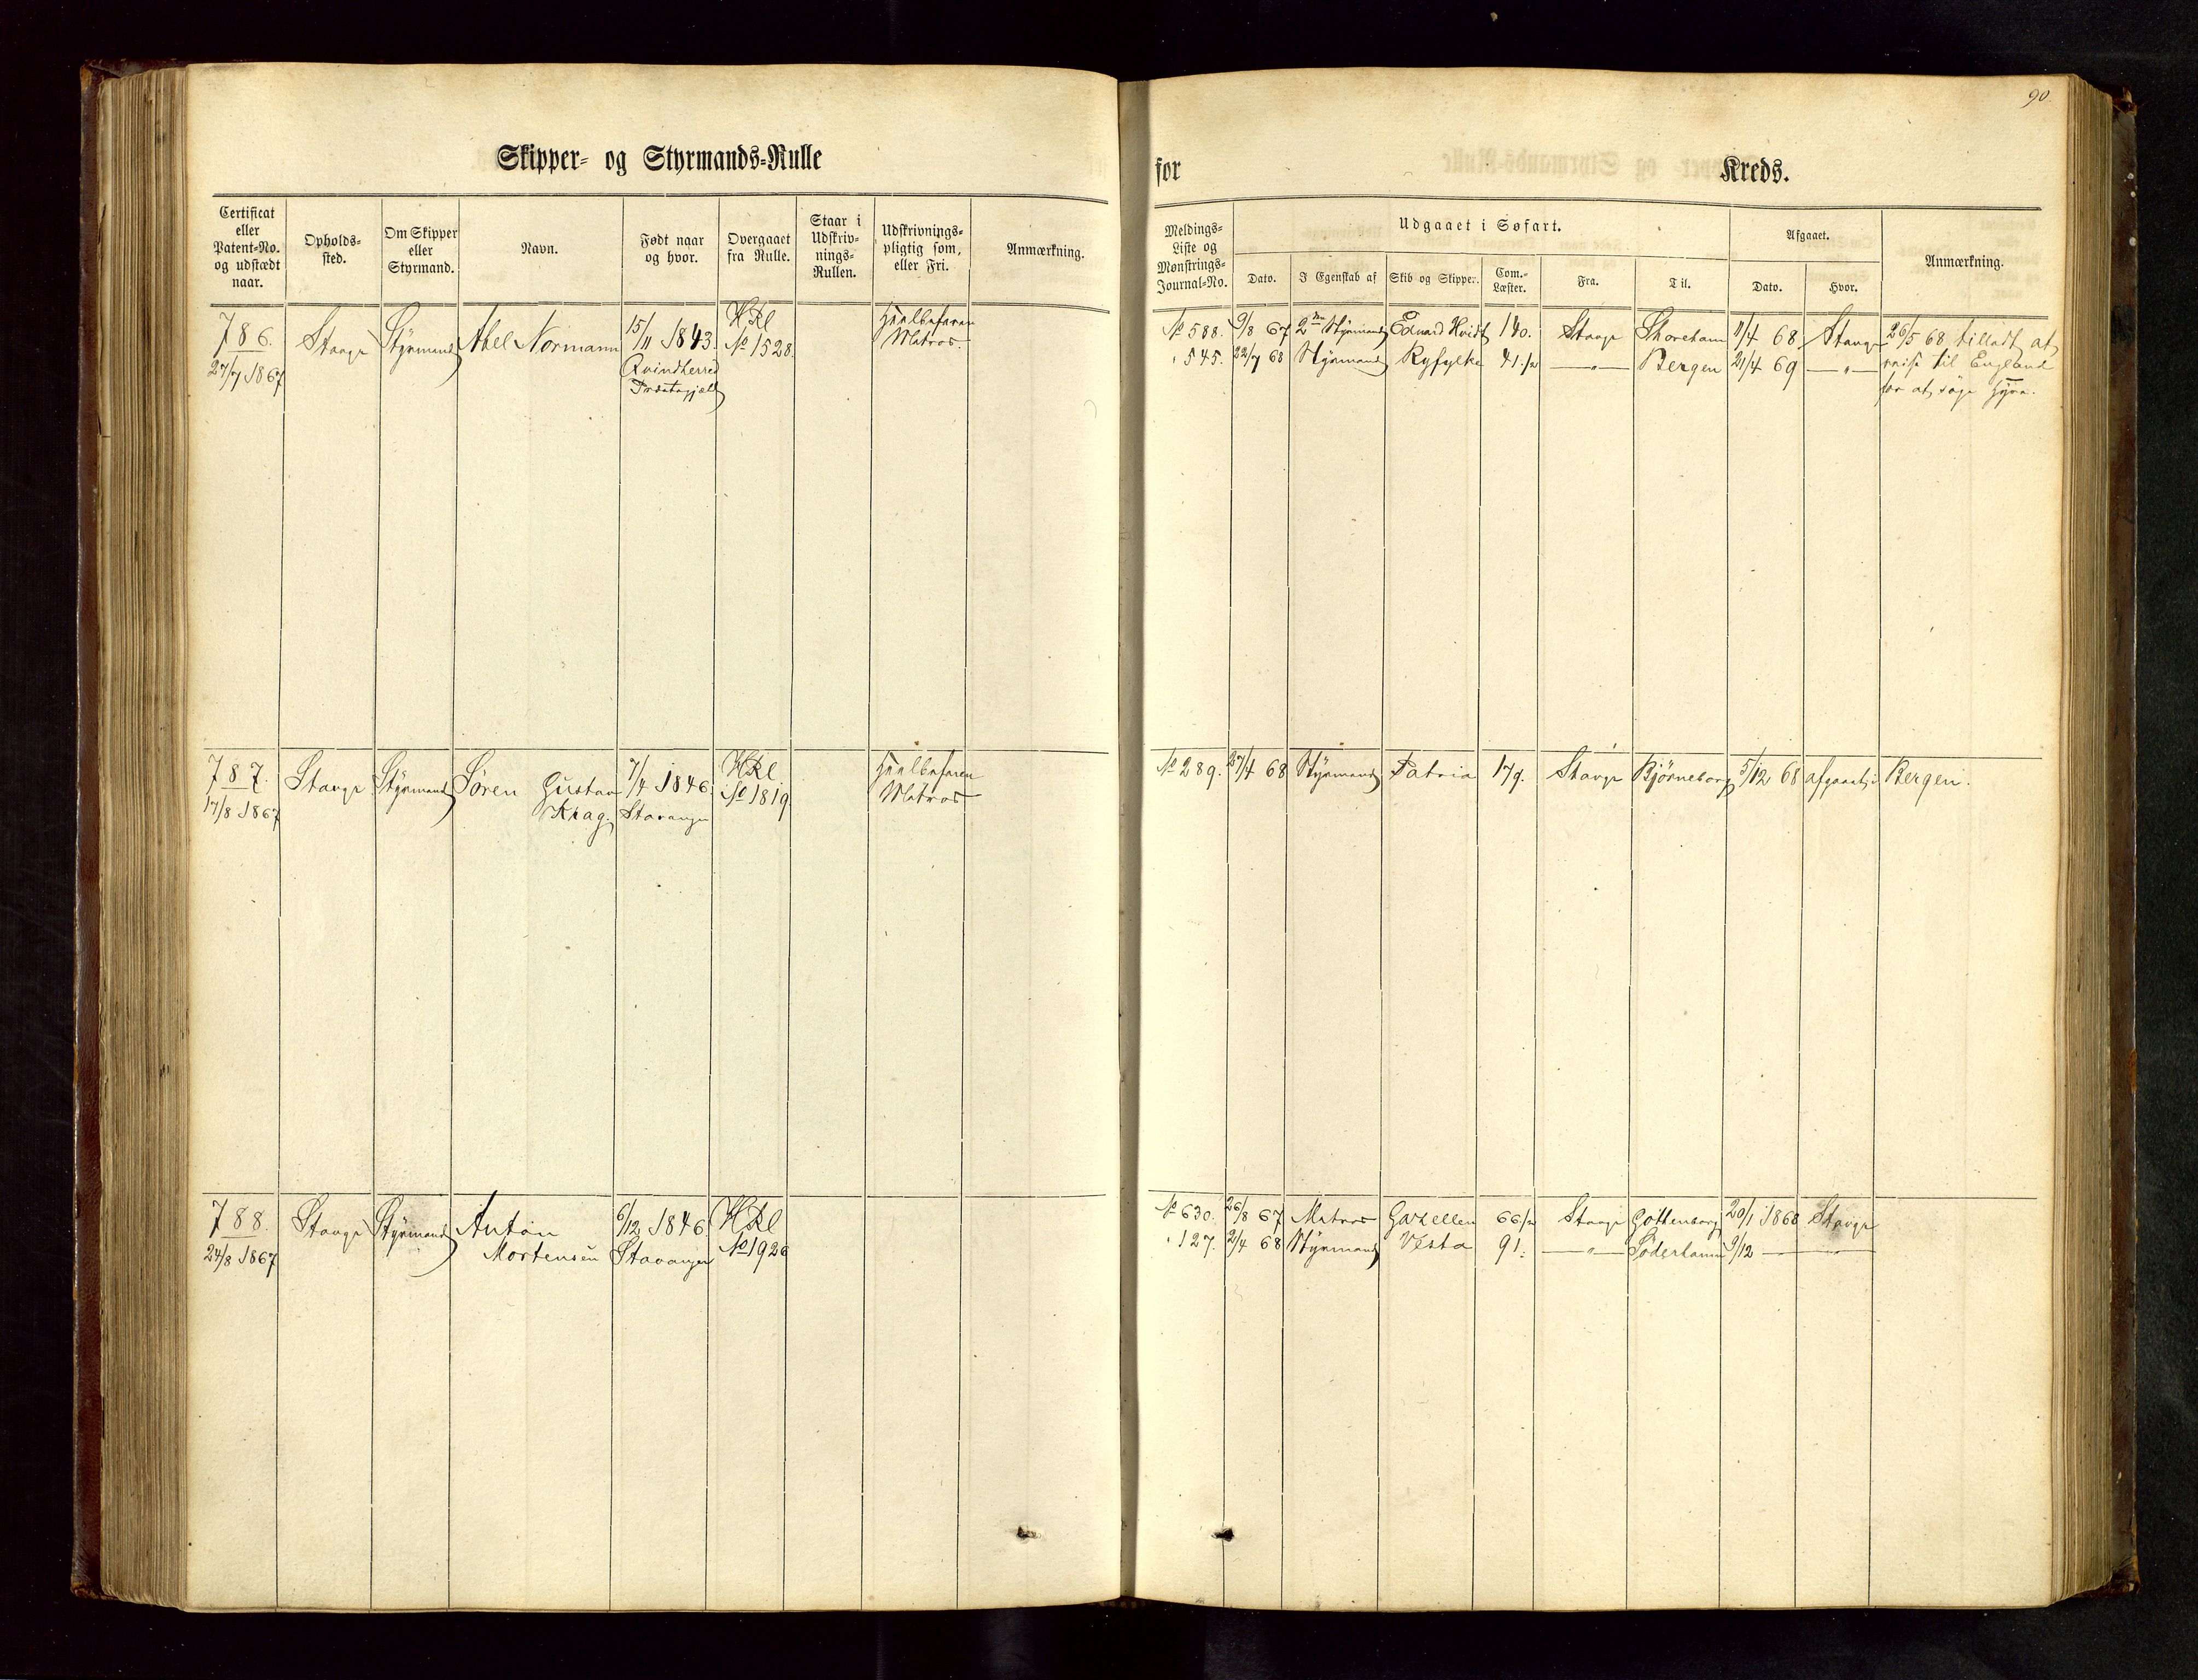 90.
Skipper- og Styrmands-Rulle
for
Kreds.
Certificat
eller
Patent-No.
og udstædt
naar.
Opholds-
sted.
Om Skipper
eller
Styrmand.
Navn.
Født naar
og hvor.
Overgaaet
fra Rulle.
Staar i
Udskriv-
nings-
Rullen.
Udskrivnings-
pligtig som,
eller Fri.
Anmærkning.
Meldings-
Liste og
Mønstrings-
Journal-No.
Udgaaet i Søfart.
Dato.
I Egenskab af
Skib og Skipper.
Com.-
Læster.
Fra.
Til.
Afgaaet.
Dato.
Hvor.
Anmærkning.
786.
27/7 1867
Stavgr
Styrmand
Abel Normann
15/11 1843.
Qvindherred
Præstegjæld
HRl
No 1528.
Heelbefaren
Matros.
No 588. 9/8 67 2den Styrmand Eduard Hvidt 140. Stavgr Shoreham 11/4 68 Stavgr
" 545. 22/7 68 Styrmand Ryfylke 41 1/2 — " — Bergen 21/4 69 — " —
26/5 68 tilladt at
reise til England
for at søge Hyre.
787.
17/8 1867
Stavgr
Styrmand
Søren Gustav
Krag.
7/4 1846.
Stavanger
HRl
No 1819
Heelbefaren
Matros
No 289. 27/4 68 Styrmand Patria 179. Stavgr Bjørneborg 5/12 68 afgaaet i Bergen.
788.
24/8 1867
Stavgr
Styrmand
Anton
Mortensen
6/12 1846.
Stavanger
HRl
No 1926
No 630. 26/8 67 Matros Gazellen 66 1/2 Stavgr Gottenborg 20/1 1868 Stavgr
" 127. 2/4 68 Styrmand Vesta 91. — " — Söderhamn 9/12 — — " —